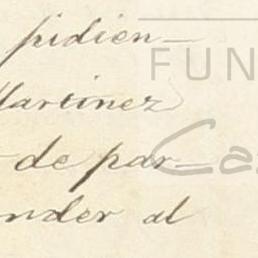 pidien-
FUN
Martinez
de par-
Ca
nder al